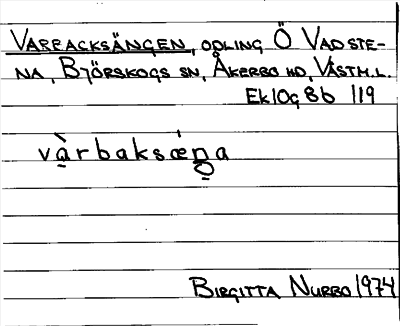 VARBACKSÄNGEN, ODLING Ö VADSTE-
NA, BJÖRSKOGS SN, ÅKERBO HD, VÄSTM.L.
Ek 10g 8b 119
và̱rbaksǽŋ̱a
BIRGITTA NURBO 1974